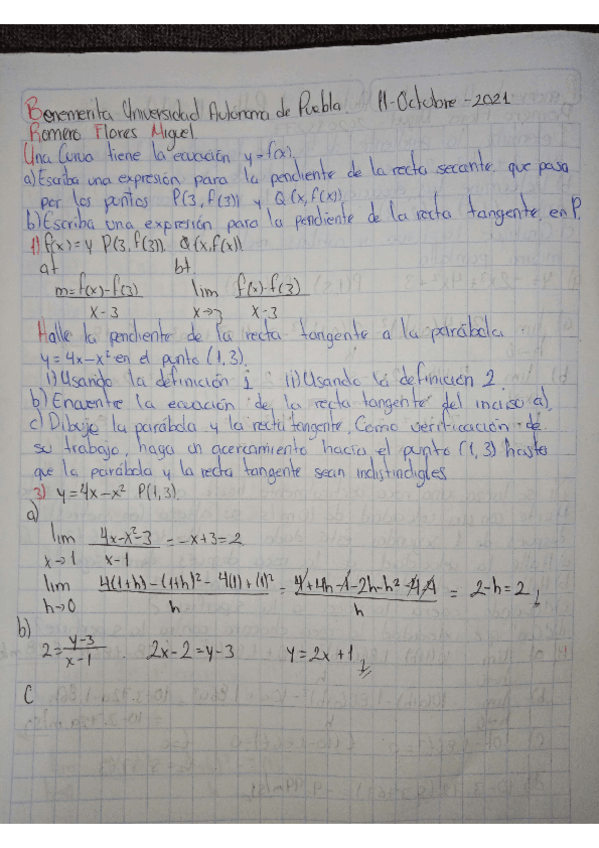 Benemerita Universidad Autónoma de Puebla. 11-Octubre-2021
Romero Flores Miguel
Una Curva tiene la ecuación y=f(x).
a) Escriba una expresión para la pendiente de la recta secante que pasa
por los puntos P(3, f(3)) y Q(x, f(x)).
b) Escriba una expresión para la pendiente de la recta tangente en P.
1) f(x)=y P(3, f(3)). Q(x, f(x)).
a) b)
m = f(x)-f(3) / x-3 lim x→3 f(x)-f(3) / x-3
Halle la pendiente de la recta tangente a la parábola
y=4x-x² en el punto (1,3).
i) Usando la definición 1 ii) Usando la definición 2
b) Encuentre la ecuación de la recta tangente del inciso a).
c) Dibuje la parábola y la recta tangente. Como verificación de
su trabajo, haga un acercamiento hacia el punto (1,3) hasta
que la parábola y la recta tangente sean indistindigles
3) y=4x-x² P(1,3).
a)
lim x→1 4x-x²-3 / x-1 = -x+3=2
lim h→0 4(1+h)-(1+h)²-4(1)+(1)² / h = 4+4h-1-2h-h²-4+1 / h = 2-h=2
b)
2= y-3 / x-1 . 2x-2=y-3 y=2x+1
C